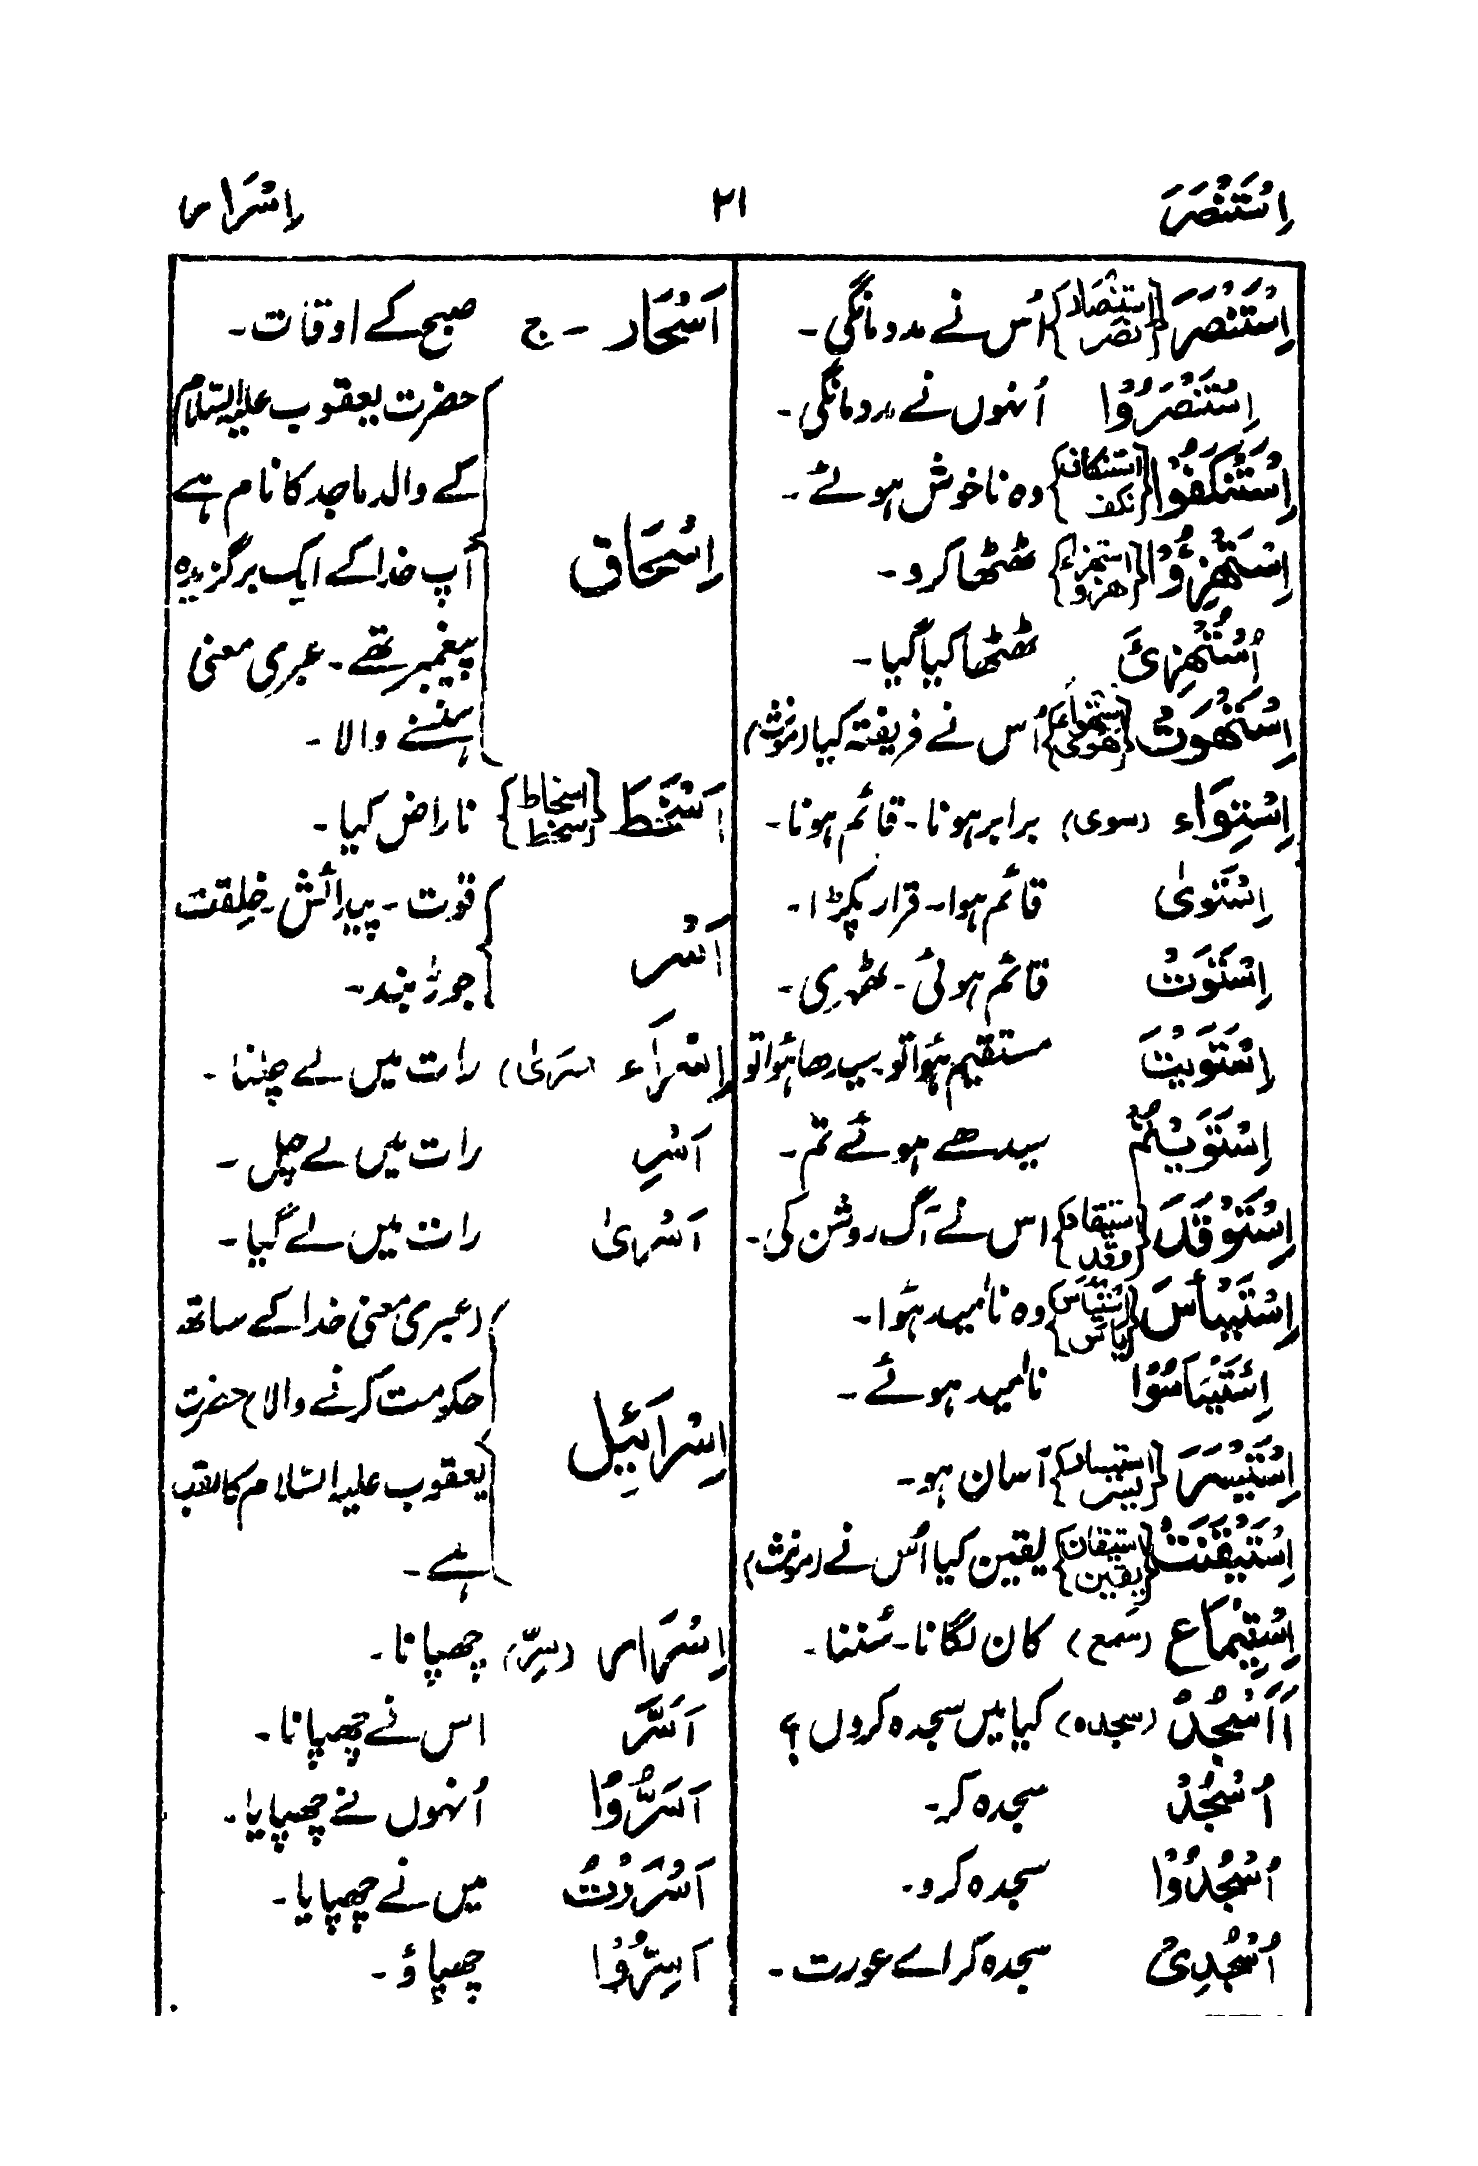 اِسْتَنْصَرَ ۲۱ اِسْرَار
اِسْتَنْصَرَ {استنصار نصر} اُس نے مدد مانگی۔
اِسْتَنْصَرُوْا اُنہوں نے مدد مانگی۔
اِسْتَنْكَفُوْا {استنکاف نکف} وہ ناخوش ہوئے۔
اِسْتَهْزِءُوْا {استہزاء ھزو} ٹھٹھا کرو۔
اُسْتُهْزِئَ ٹھٹھا کیا گیا۔
اِسْتَهْوَتْ {استہواء ھوی} اُس نے فریفتہ کیا (مؤنث)
اِسْتِوَاء (سوی) برابر ہونا۔ قائم ہونا۔
اِسْتَوٰى قائم ہوا۔ قرار پکڑا۔
اِسْتَوَتْ قائم ہوئی۔ ٹھہری۔
اِسْتَوَيْتَ مستقیم ہؤا تو سیدھا ہؤا تو
اِسْتَوَيْتُمْ سیدھے ہوئے تم۔
اِسْتَوْقَدَ {استیقاد وقد} اس نے آگ روشن کی۔
اِسْتَيْأَسَ {استیئاس یأس} وہ ناامید ہؤا۔
اِسْتَيْأَسُوْا ناامید ہوئے۔
اِسْتَيْسَرَ {استیسار یسر} آسان ہو۔
اِسْتَيْقَنَتْ {استیقان یقین} یقین کیا اُس نے (مؤنث)
اِسْتِمَاع (سمع) کان لگانا۔ سُننا۔
أَأَسْجُدُ (سجدہ) کیا میں سجدہ کروں؟
اُسْجُدْ سجدہ کر۔
اُسْجُدُوْا سجدہ کرو۔
اُسْجُدِىْ سجدہ کر اے عورت۔
اَسْحَار ۔ ج صبح کے اوقات۔
حضرت یعقوب علیہ السلام
کے والد ماجد کا نام ہے
اِسْحَاق آپ خدا کے ایک برگزیدہ
پیغمبر تھے۔ عبری معنی
ہنسنے والا۔
اَسْخَطَ {اسخاط سخط} ناراض کیا۔
اَسْر قوت۔ پیدائش۔ خلقت
جوڑ بند۔
اِسْرَاء (سَرٰی) رات میں لے چلنا۔
اَسْرِ رات میں لے چل۔
اَسْرٰى رات میں لے گیا۔
(عبری معنی خدا کے ساتھ
حکومت کرنے والا) حضرت
اِسْرَائِيل یعقوب علیہ السلام کا لقب
ہے۔
اِسْرَار (سِرّ) چھپانا۔
اَسَرَّ اس نے چھپانا۔
اَسَرُّوْا اُنہوں نے چھپایا۔
اَسْرَرْتُ میں نے چھپایا۔
اَسِرُّوْا چھپاؤ۔